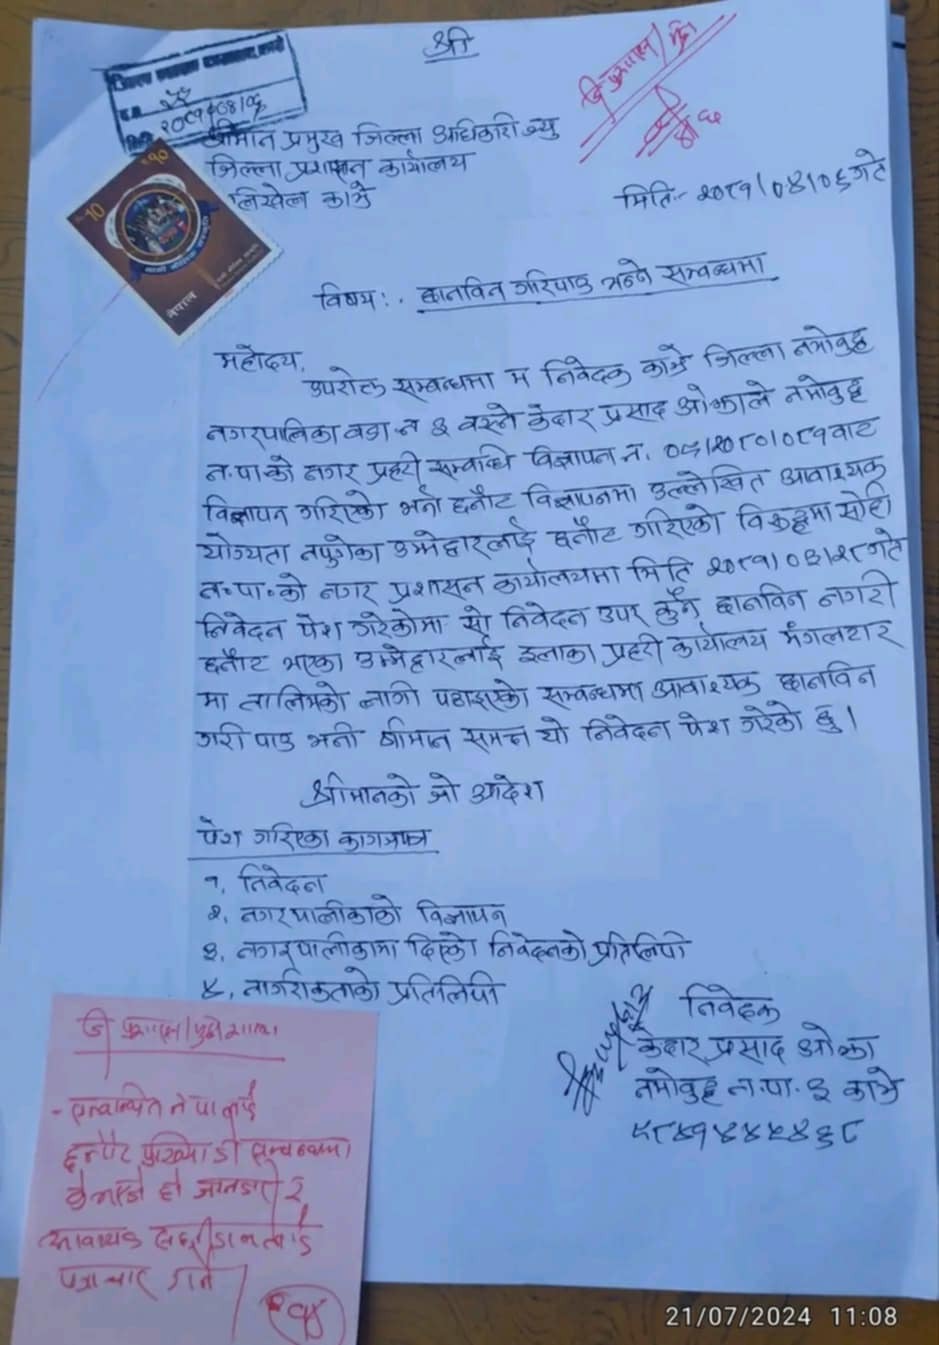 श्री
जिल्ला प्रशासन कार्यालय, काभ्रे
२०८१/०४/०६
श्रीमान प्रमुख जिल्ला अधिकारी ज्यु
जिल्ला प्रशासन कार्यालय
काभ्रे
मिति:- २०८१/०४/०६ गते
रु १०
10
नेपाल
विषय:- छानविन गरिपाउ भन्ने सम्बन्धमा
महोदय,
उपरोक्त सम्बन्धमा म निवेदक काभ्रे जिल्ला नमोबुद्ध
नगरपालिका वडा न ३ वस्ने केदार प्रसाद ओझाले नमोबुद्ध
न.पा.को नगर प्रहरी सम्बन्धि विज्ञापन न. ०८१/०८२ वाट
विज्ञापन गरिएको भर्ना छनौट विज्ञापनमा उल्लेखित आवाश्यक
योग्यता नपुगेका उम्मेद्वारलाई छनौट गरिएको विरुद्धमा सोही
न.पा.को नगर प्रशासन कार्यालयमा मिति २०८१/०३/२८ गते
निवेदन पेश गरेकोमा सो निवेदन उपर कुनै छानविन नगरी
छनौट भएका उम्मेद्वारलाई इलाका प्रहरी कार्यालय मंगलटार
मा तालिमको लागी पठाइएको सम्बन्धमा आवाश्यक छानविन
गरी पाउ भनी श्रीमान समक्ष यो निवेदन पेश गरेको छु।
श्रीमानको जो आदेश
पेश गरिएका कागजपत्र
१. निवेदन
२. नगरपालीकाको विज्ञापन
३. नगरपालीकामा दिएको निवेदनको प्रतिलिपी
४. नागरीकताको प्रतिलिपी
निवेदक
केदार प्रसाद ओझा
नमोबुद्ध न.पा. ३ काभ्रे
९८४१४४५४३८
- सम्बन्धित न पा लाई
छनौट प्रक्रिया को सम्बन्धमा
के भएको हो जानकारी र
आवाश्यक
पत्राचार गर्ने
21/07/2024 11:08